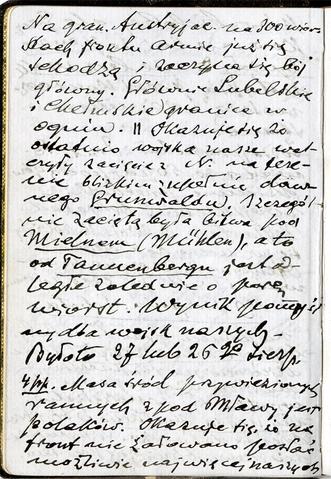 Na gran. Austryjac. na 300 wior-
stach frontu armie już się
schodzą i zaczyna się bój
główny. Głównie Lubelskie
i Chełmskie granice w
ogniu. || Okazuje się że
ostatnio wojska nasze wal-
czyły zacięcie z N. na tere-
nie blizkim zupełnie daw-
nego Grunwaldu. Szczegól-
nie zaciętą była bitwa pod
Mielnem (Mühlen), a to
od Tannenbergu jest od-
ległe zaledwie o parę
wiorst. Wynik pomyśl-
ny dla wojsk naszych.
Było to 27 lub 26go Sierp
4 pp. Masa śród przywiezionych
rannych z pod Mławy jest
polaków. Okazuje się, że na
front nie żałowano posłać
możliwie najwięcej naszych